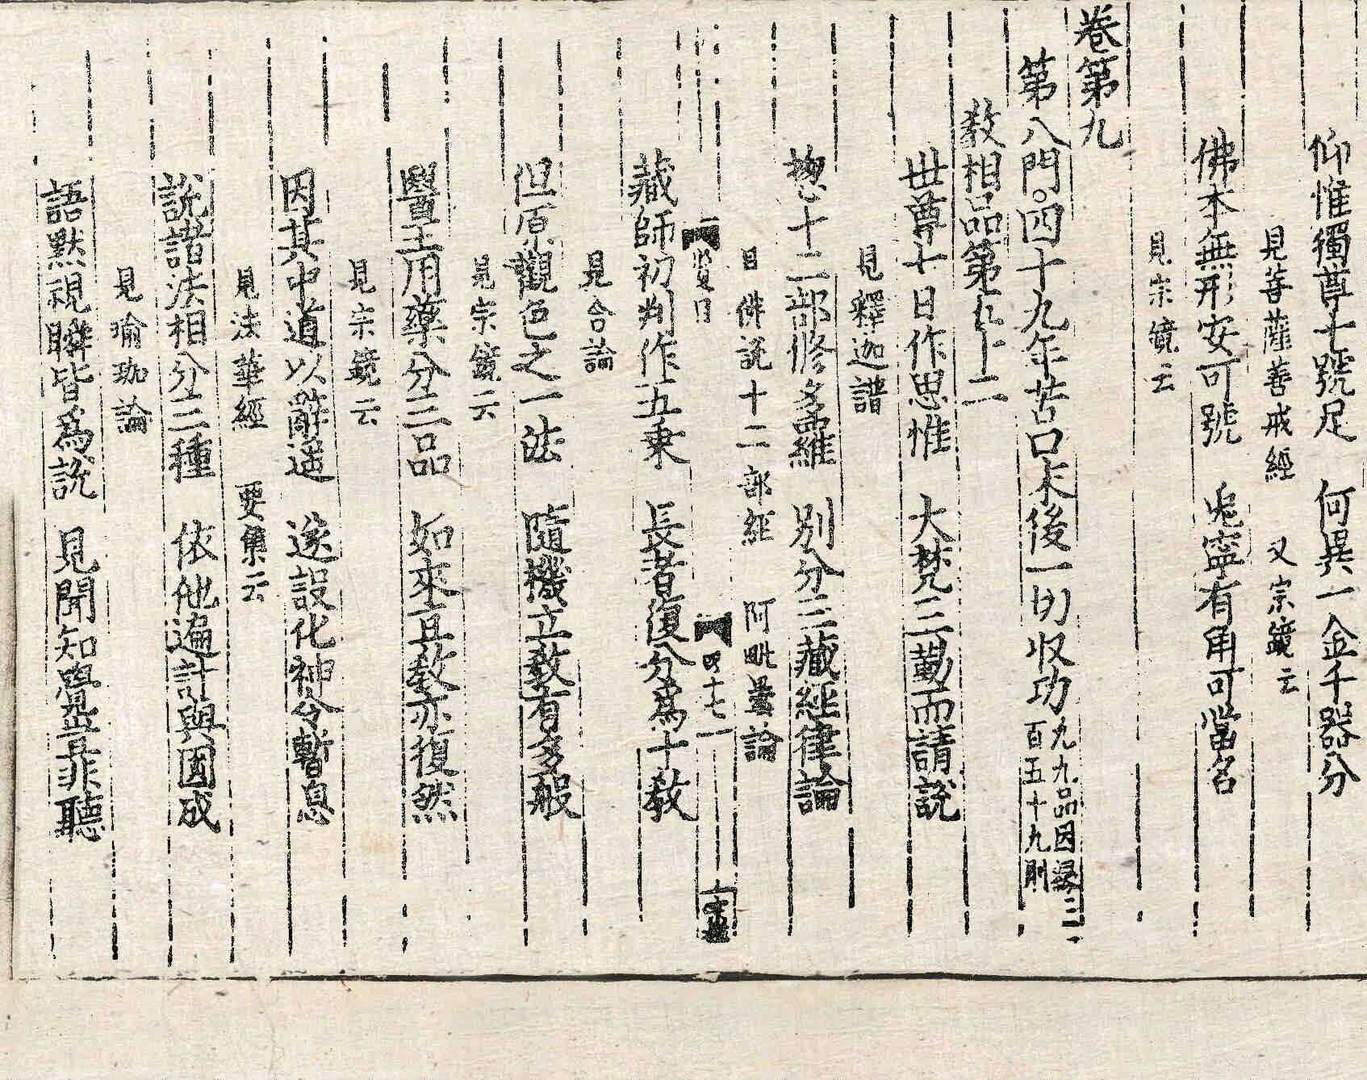 仰惟獨尊十號足　何異一金千器分
見菩薩善戒經　又宗鏡云
佛本無形安可號　兎寧有角可當名
見宗鏡云
卷第九
第八門。四十九年苦口末後一切収功 九九品因緣三百五十九則
教相品第五十二
世尊七日作思惟　大梵三勸而請說
見釋迦譜
揔十二部修多羅　別分三藏經律論
目佛說十二部經　阿毗曇論
藏師初判作五乘　長者復分爲十教
見合論
但原觀色之一法　隨機立教有多般
見宗鏡云
醫王用藥分三品　如來宜教亦復然
見宗鏡云
因其中道以辭退　遂設化神令暫息
見法華經　要集云
說諸法相分三種　依他遍計與圓成
見瑜珈論
語黙視瞬皆爲說　見聞知覺盡非聽